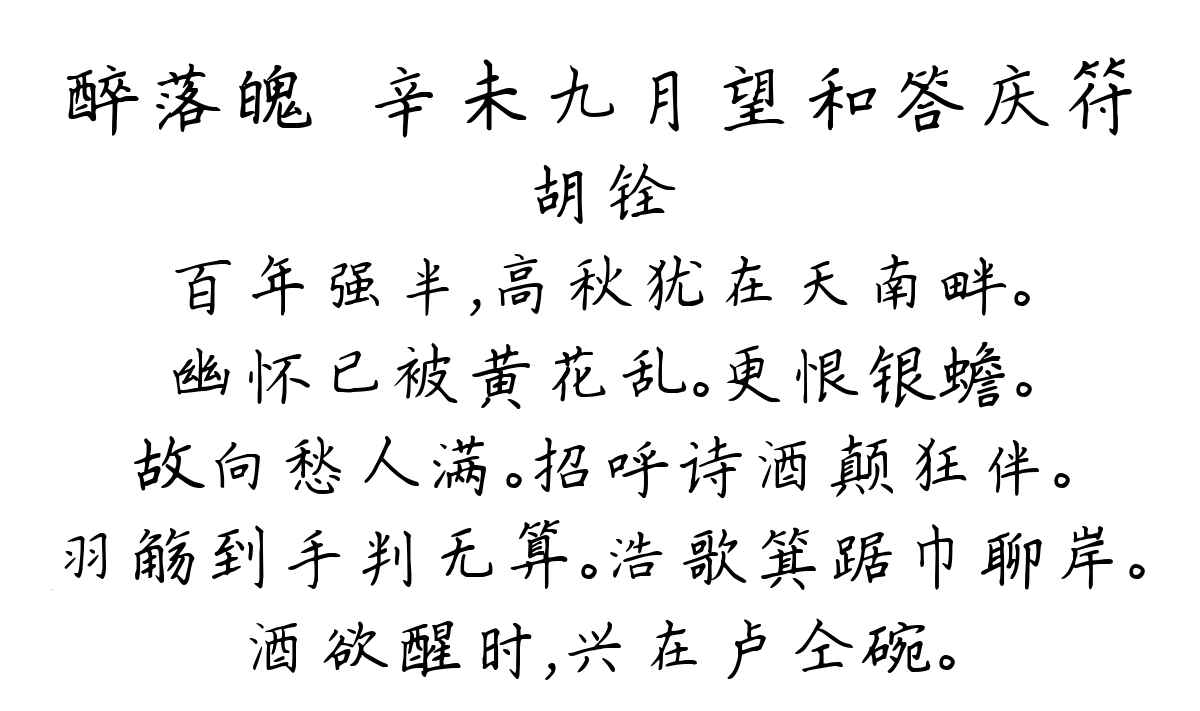 醉落魄 辛未九月望和答庆符
胡铨
百年强半,高秋犹在天南畔。
幽怀已被黄花乱。更恨银蟾。
故向愁人满。招呼诗酒颠狂伴。
羽觞到手判无算。浩歌箕踞巾聊岸。
酒欲醒时,兴在卢仝碗。